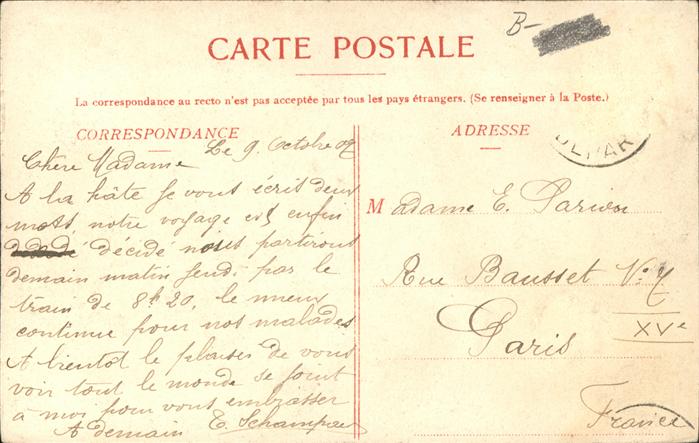 B-
CARTE POSTALE
La correspondance au recto n'est pas acceptée par tous les pays étrangers. (Se renseigner à la Poste.)
CORRESPONDANCE
Le 9 Octobre
Chère Madame
A la hâte je vous écrit deux
mots, notre voyage est enfin
décidé nous partirons
demain matin Jeudi par le
train de 8h20, le mieux
continue pour nos malades
A bientot le plaisir de vous
voir tout le monde se joint
à moi pour vous embrasser
A demain E.
ADRESSE
Madame E.
Rue Bausset No 7
Paris
XVe
France